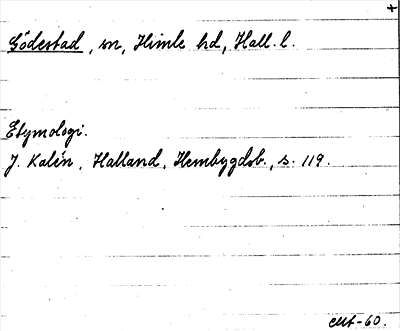 +
Gödestad, sn, Himle hd, Hall. l.
Etymologi.
J. Kalén, Halland, Hembygdsb., s. 119.
-60.